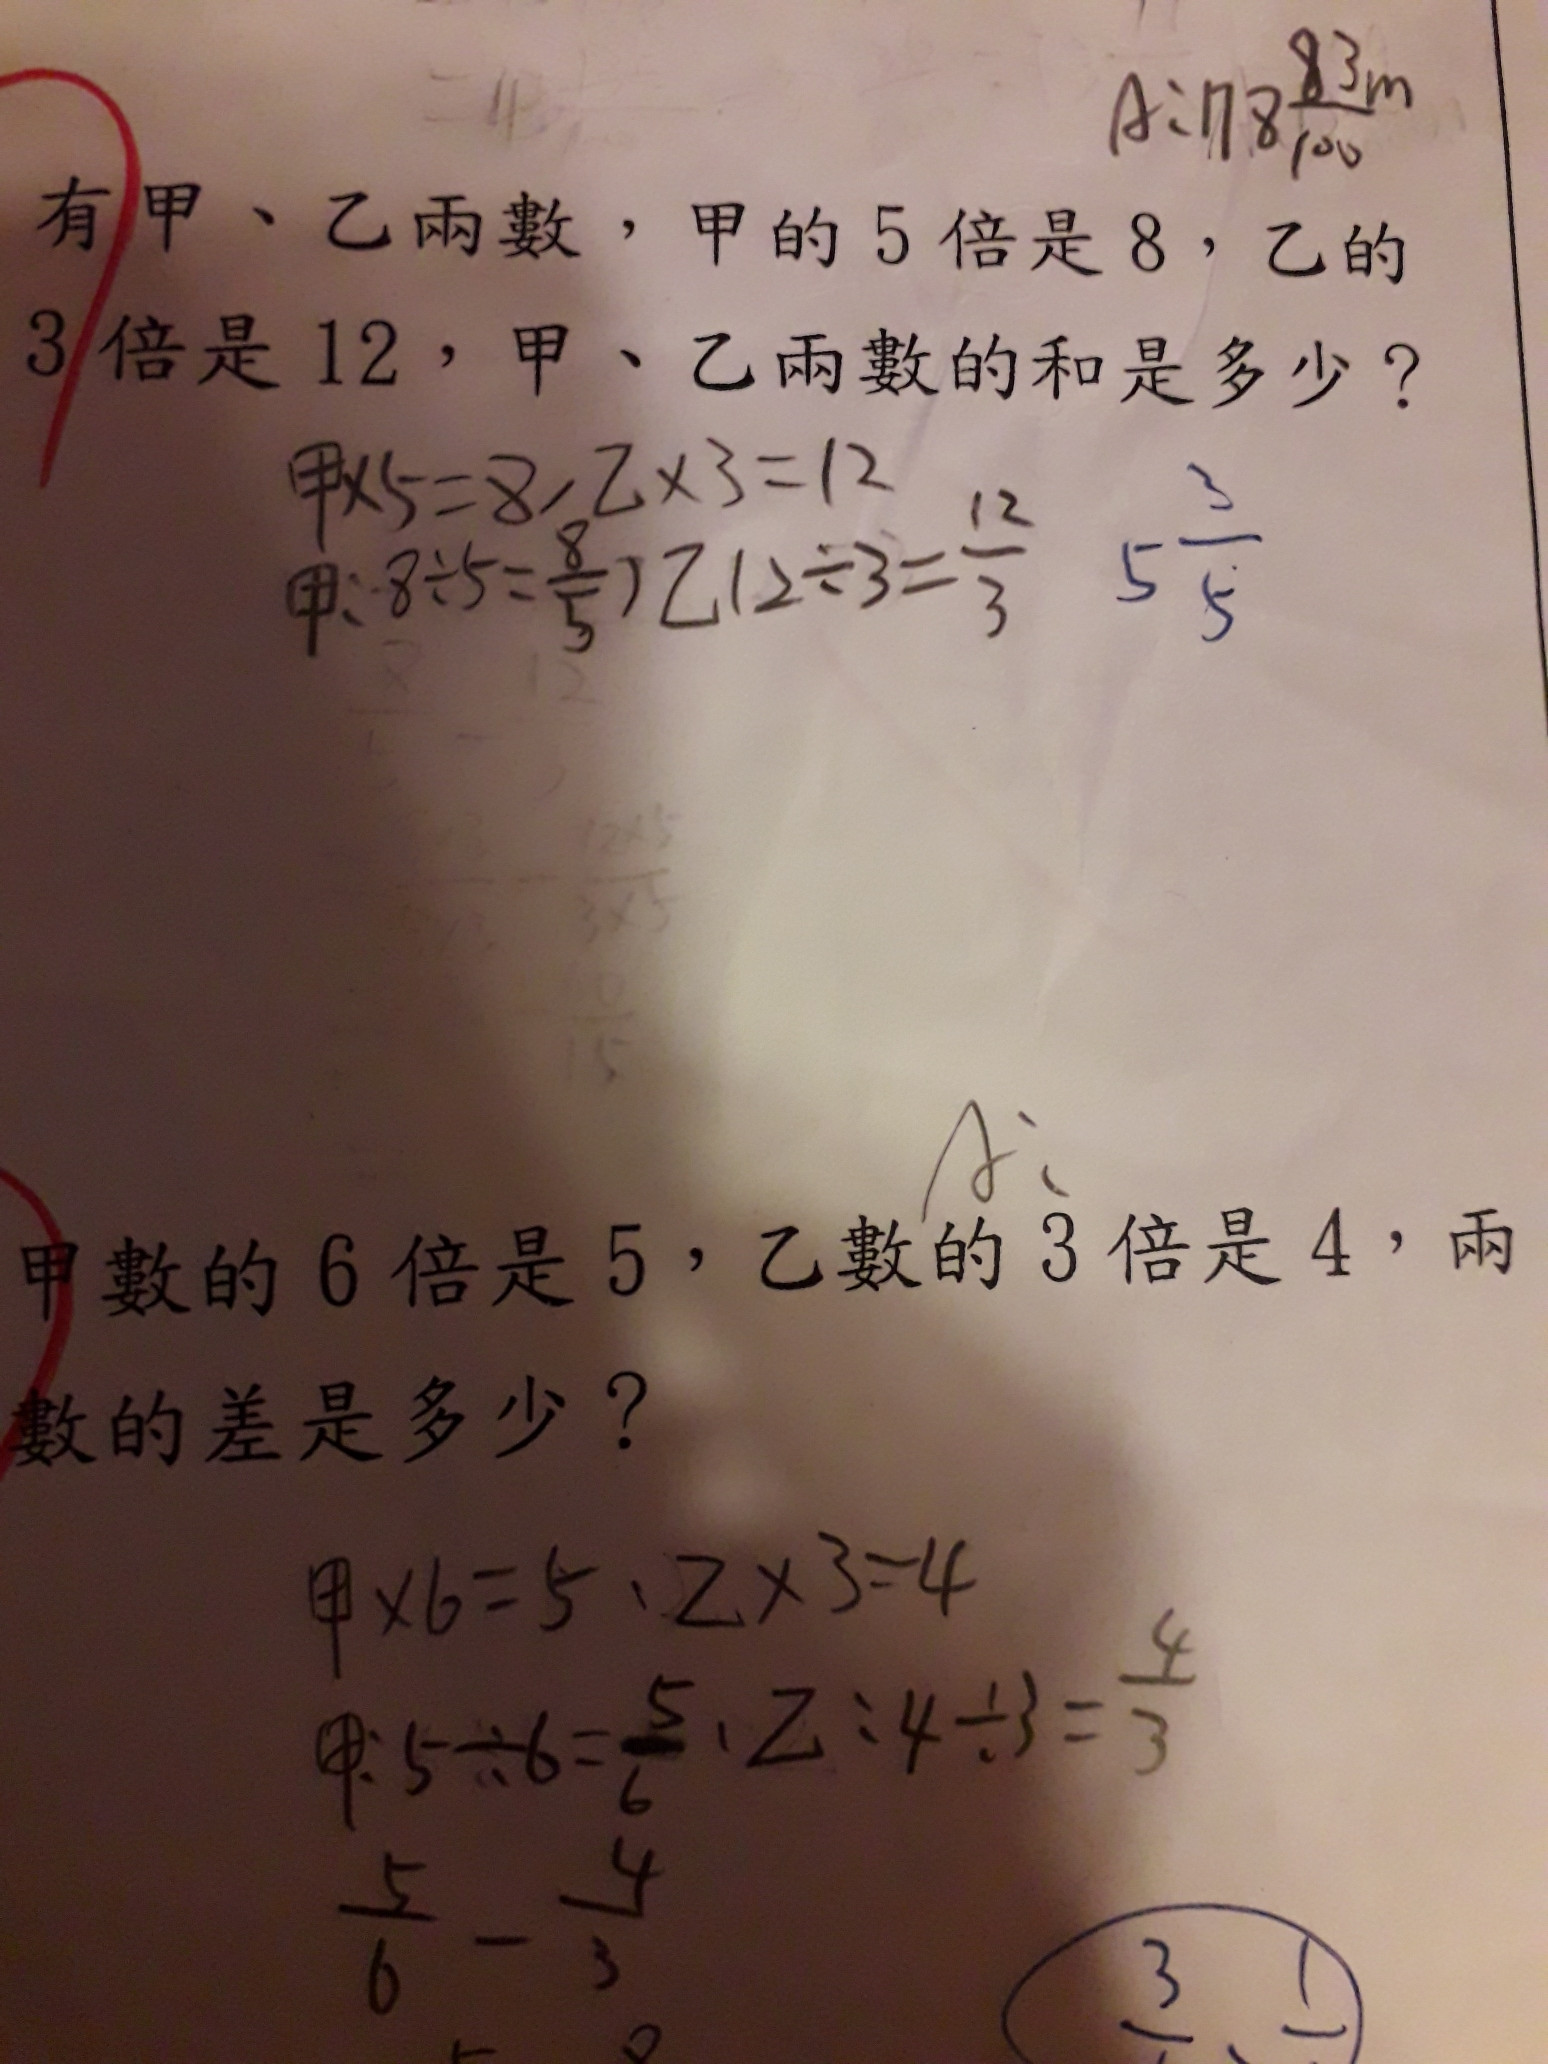 A:178 83/100 m
有甲、乙兩數，甲的5倍是8，乙的
3倍是12，甲、乙兩數的和是多少？
甲×5=8、乙×3=12
甲:8÷5=8/5、乙12÷3=12/3
5 3/5
A:
甲數的6倍是5，乙數的3倍是4，兩
數的差是多少？
甲×6=5、乙×3=4
甲:5÷6=5/6、乙:4÷3=4/3
5/6 - 4/3